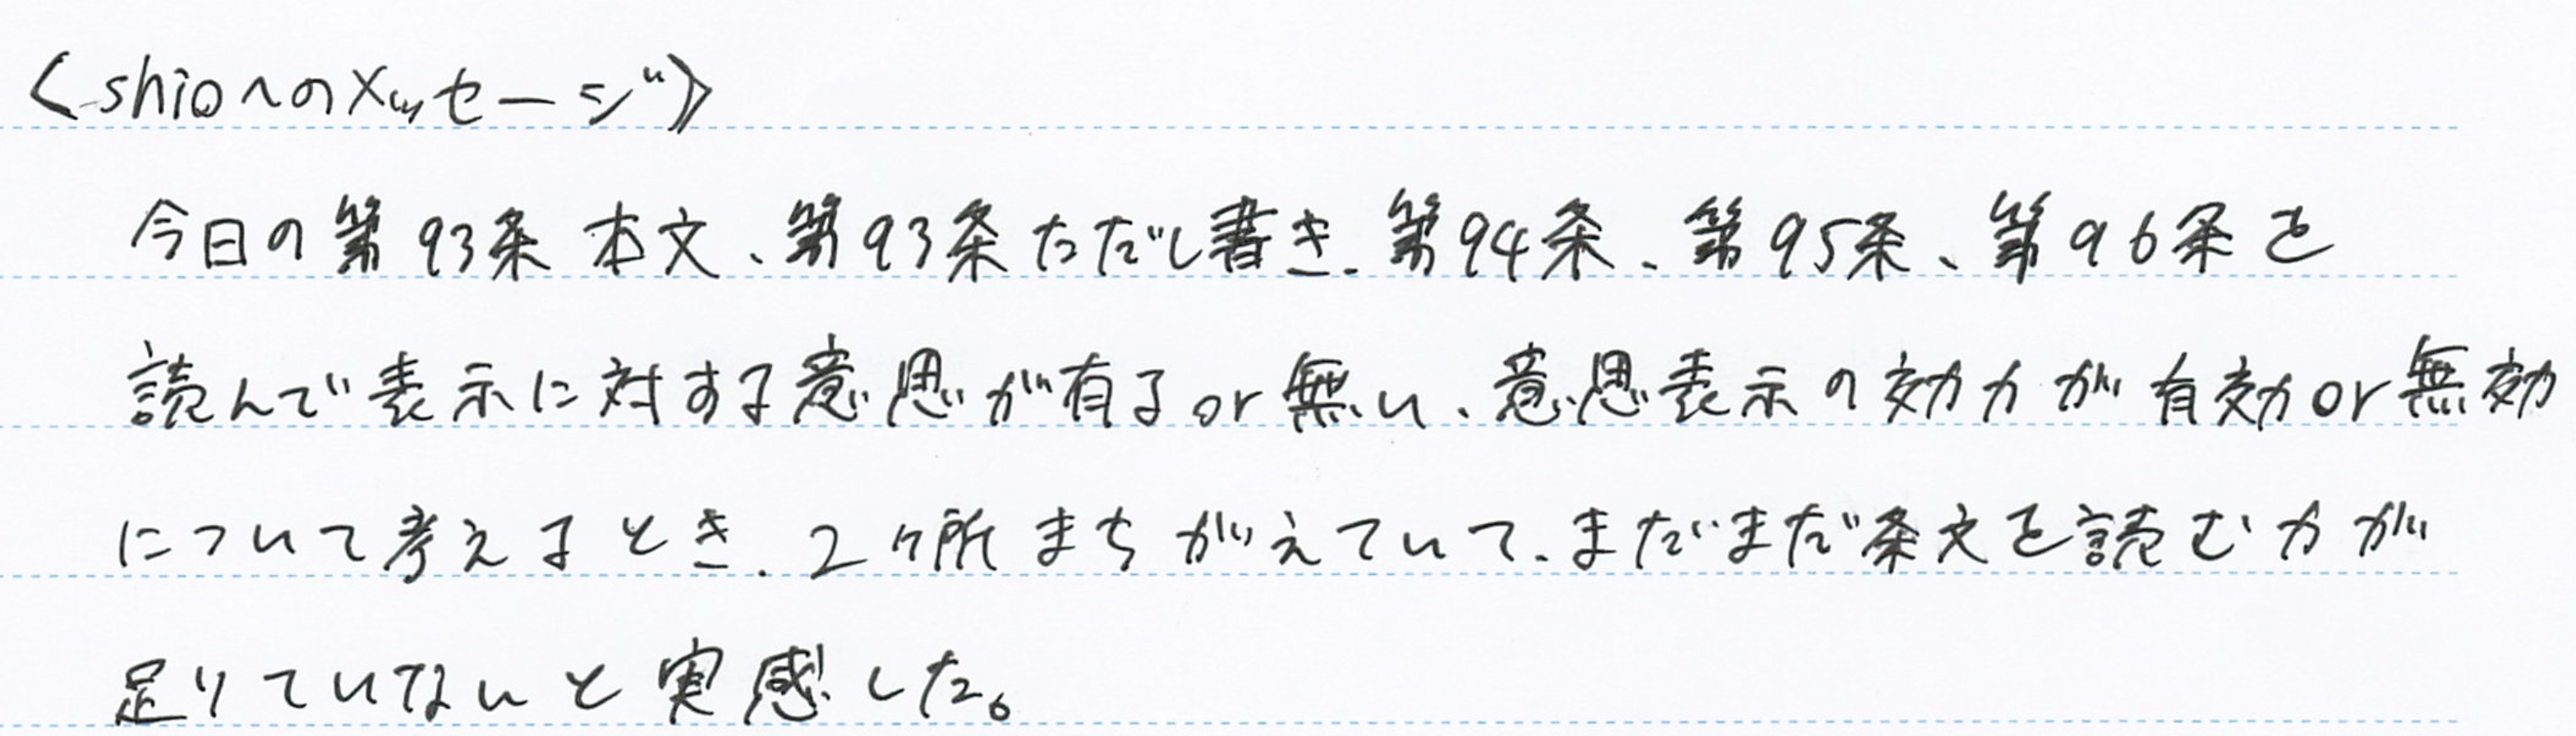 〈shioへのメッセージ〉
今日の第93条本文、第93条ただし書き、第94条、第95条、第96条を
読んで表示に対する意思が有るor無い、意思表示の効力が有効or無効
について考えるとき、2ヶ所まちがえていて、まだまだ条文を読む力が
足りていないと実感した。